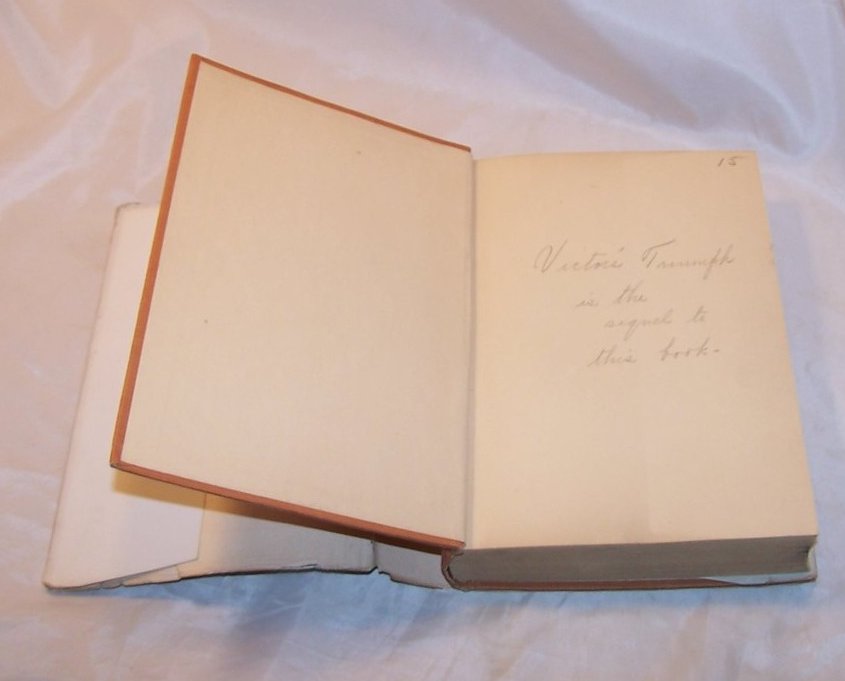 15
Victor's Triumph
is the
sequel to
this book.